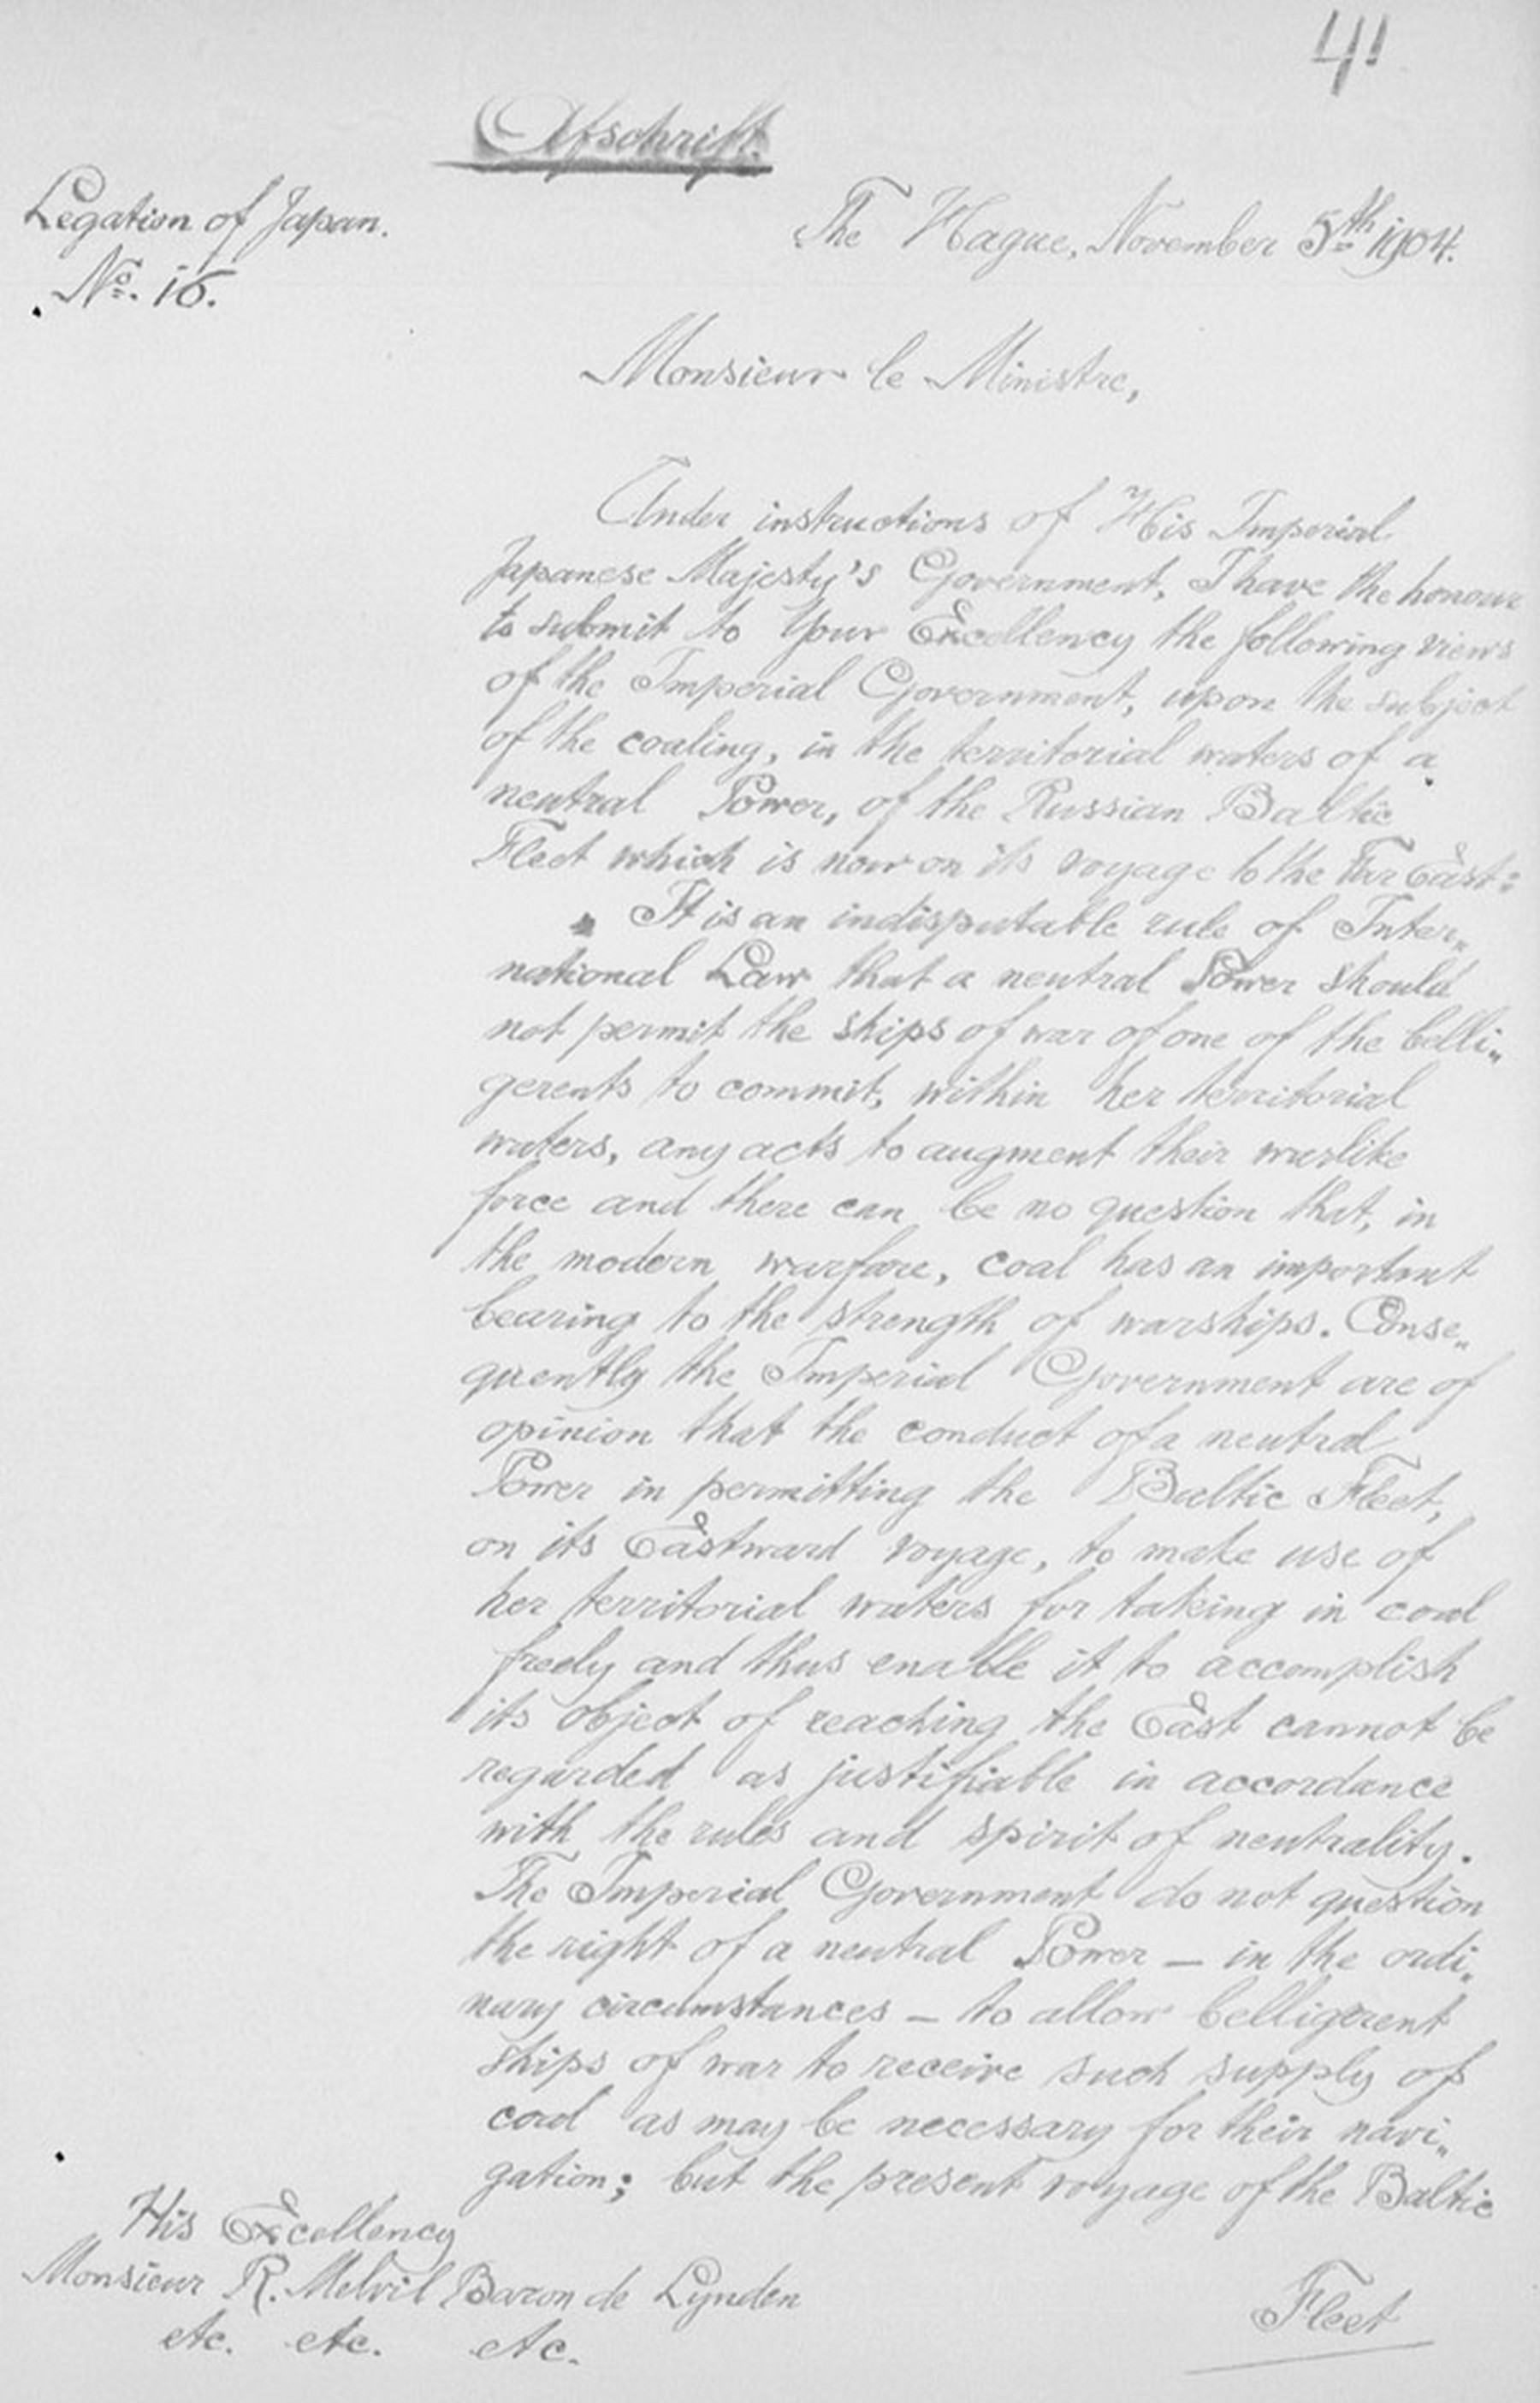 41
Afschrift.
Legation of Japan.
The Hague, November 5th 1904.
No. 16.
Monsieur le Ministre,
Under instructions of His Imperial
Japanese Majesty's Government, I have the honour
to submit to Your Excellency the following views
of the Imperial Government, upon the subject
of the coaling, in the territorial waters of a
neutral Power, of the Russian Baltic
Fleet which is now on its voyage to the Far East:
It is an indisputable rule of Inter„
national Law that a neutral Power should
not permit the ships of war of one of the belli„
gerents to commit, within her territorial
waters, any acts to augment their warlike
force and there can be no question that, in
the modern warfare, coal has an important
bearing to the strength of warships. Conse„
quently the Imperial Government are of
opinion that the conduct of a neutral
Power in permitting the Baltic Fleet,
on its Eastward voyage, to make use of
her territorial waters for taking in coal
freely and thus enable it to accomplish
its object of reaching the East cannot be
regarded as justifiable in accordance
with the rules and spirit of neutrality.
The Imperial Government do not question
the right of a neutral Power — in the ordi„
nary circumstances — to allow belligerent
ships of war to receive such supply of
coal as may be necessary for their navi„
gation; but the present voyage of the Baltic
His Excellency
Monsieur R. Melvil Baron de Lynden
etc. etc. etc.
Fleet